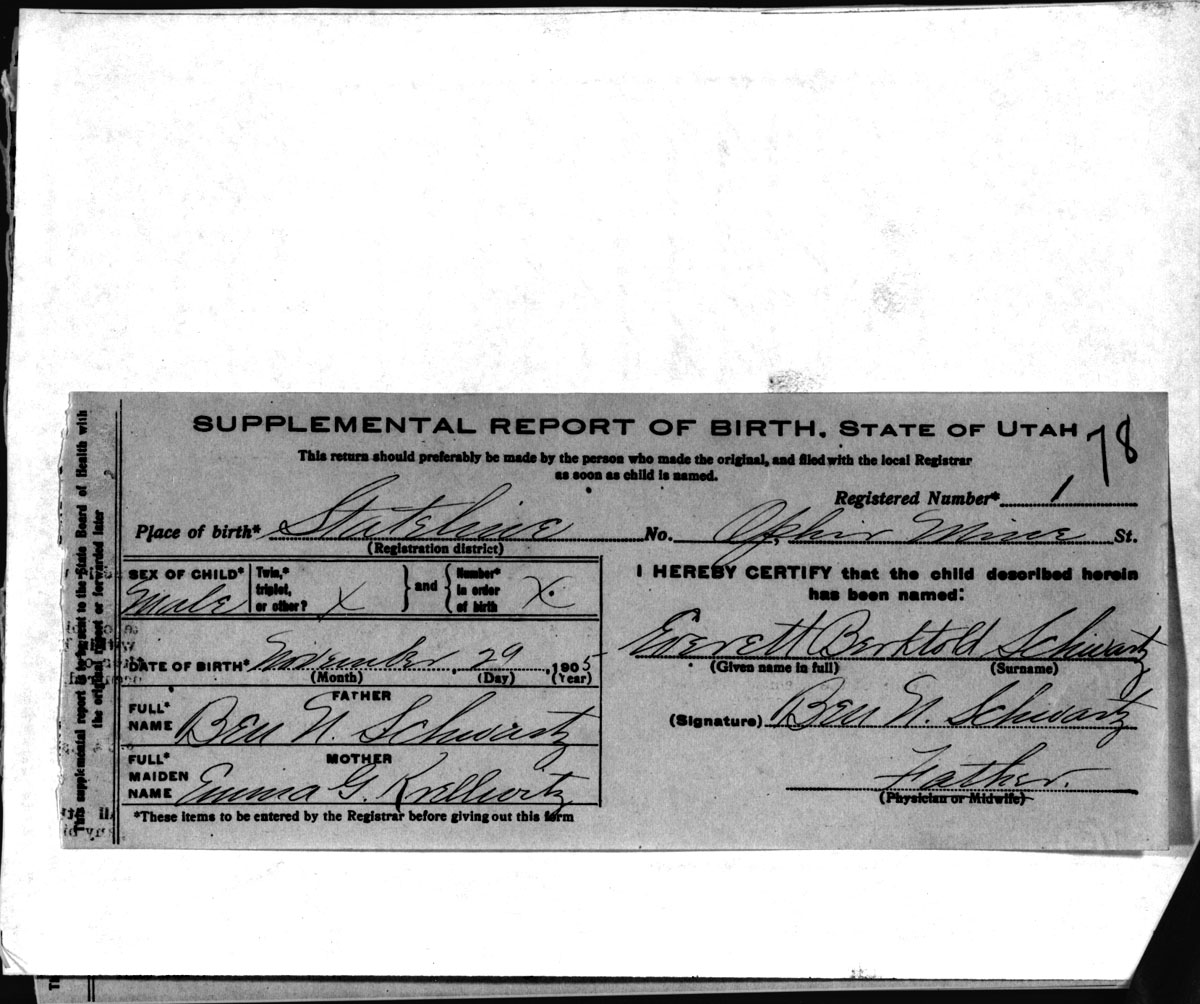 SUPPLEMENTAL REPORT OF BIRTH, STATE OF UTAH
78
This return should preferably be made by the person who made the original, and filed with the local Registrar
as soon as child is named.
Registered Number* 1
Place of birth* Stateline No. Ophir Mine St.
(Registration district)
SEX OF CHILD* Male
Twin,* triplet, or other? X
and
Number* in order of birth X.
I HEREBY CERTIFY that the child described herein
has been named:
Everett Berktold Schwartz
(Given name in full) (Surname)
DATE OF BIRTH* November 29, 1905
(Month) (Day) (Year)
FATHER
FULL* NAME Ben N. Schwartz
(Signature) Ben N. Schwartz
MOTHER
FULL* MAIDEN NAME Emma G. Krellwitz
Father.
(Physician or Midwife)
*These items to be entered by the Registrar before giving out this form
This supplemental report is to be sent to the State Board of Health with
the original report or forwarded later